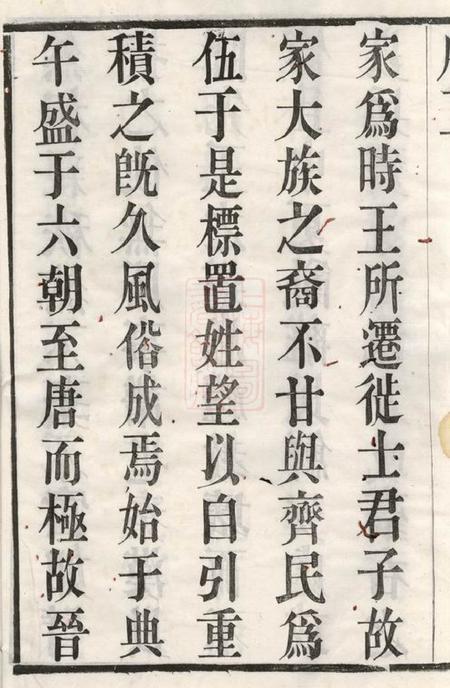 家爲時王所遷徙士君子故
家大族之裔不甘與齊民爲
伍于是標置姓望以自引重
積之既久風俗成焉始于典
午盛于六朝至唐而極故晉